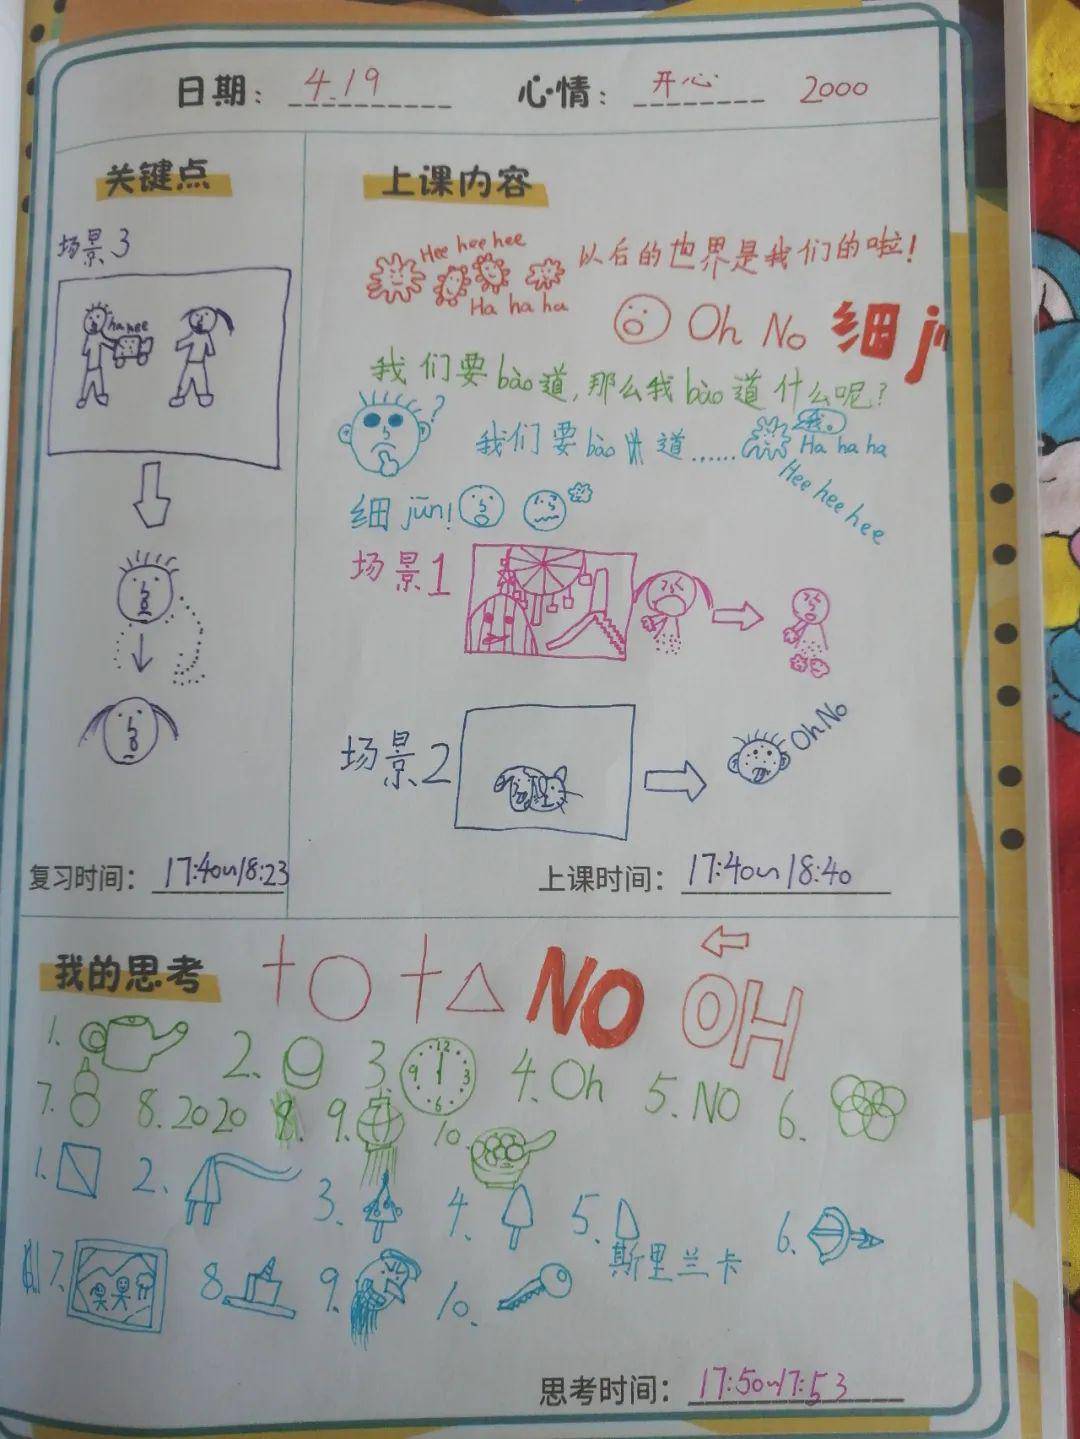 日期：4.19 心情：开心 2000
关键点
场景3
ha hee
复习时间：17:40~18:23
上课内容
Hee hee hee
Ha ha ha
以后的世界是我们的啦！
Oh No 细
我们要bào道,那么我bào道什么呢？
?
我们要bào道…… 我。
Ha ha ha
Hee hee hee
细jūn!
场景1
场景2
Oh No
上课时间：17:40~18:40
我的思考
NO OH
1. 2. 3. 12 3 6 9 4. Oh 5. NO 6.
7. 8. 2020 8. 9. 10.
1. 2. 3. 4. 5. 6.
斯里兰卡
7. 8. 9. 10.
思考时间：17:50~17:53